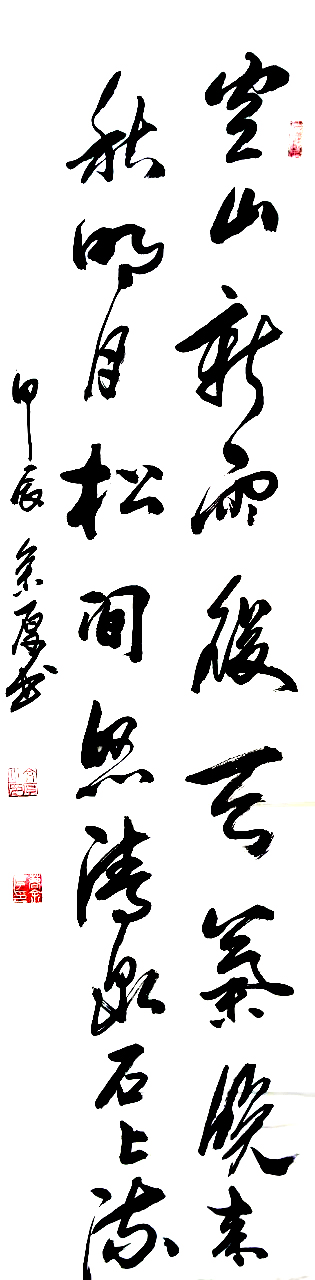 空山新雨後天氣晚来
秋明月松间照清泉石上流
甲辰 厚书